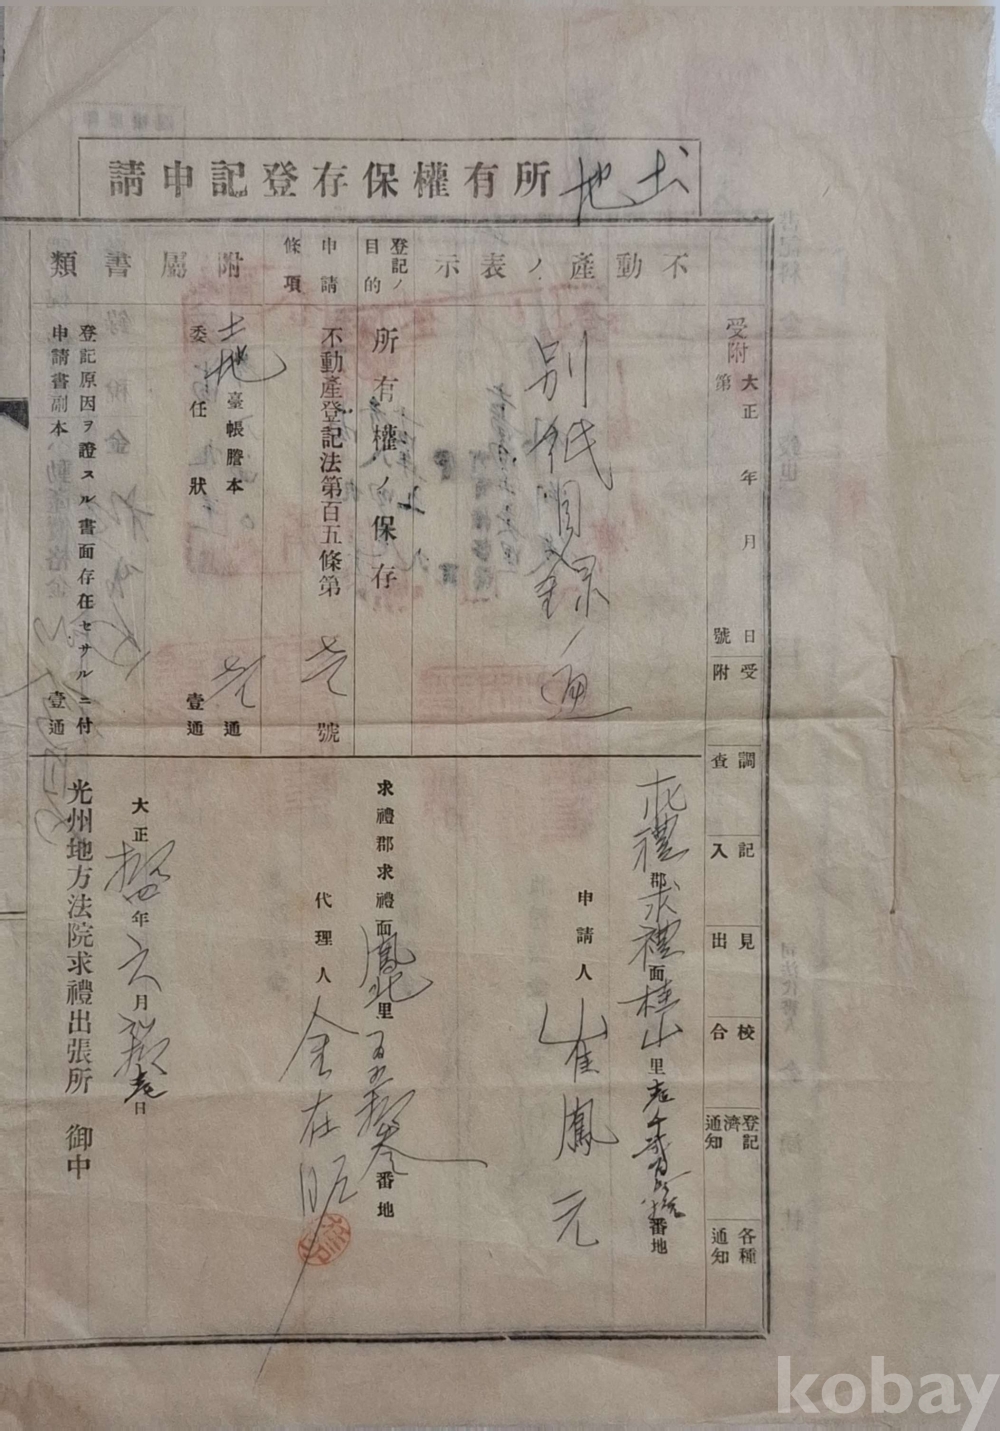 土地所有權保存登記申請
受附
大正 年 月 日
第 號
受附
調査
記入
見出
校合
登記濟通知
各種通知
不動產ノ表示
別紙目録ノ通
登記ノ目的
所有權ノ保存
申請條項
不動產登記法第百五條第壱號
附屬書類
土地臺帳謄本 壱通
委任狀 壹通
登記原因ヲ證スル書面存在セサルニ付
申請書副本 壹通
求禮郡求禮面桂山里 番地
申請人 崔鳳元
求禮郡求禮面鳳北里 番地
代理人 金在
大正 年六月 日
光州地方法院求禮出張所 御中
kobay